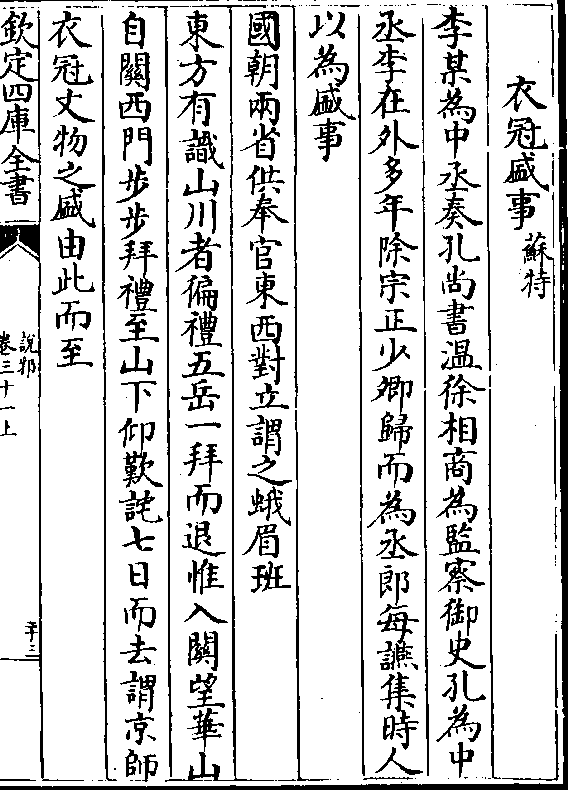 衣冠盛事蘇特
李某為中丞奏孔尚書溫徐相商為監察御史孔為中
丞李在外多年除宗正少卿歸而為丞郎每讌集時人
以為盛事
國朝兩省供奉官東西對立謂之蛾眉班
東方有識山川者徧禮五岳一拜而退惟入關望華山
自關西門步步拜禮至山下仰歎詫七日而去謂京師
衣冠文物之盛由此而至
欽定四庫全書
說郛
卷三十一上